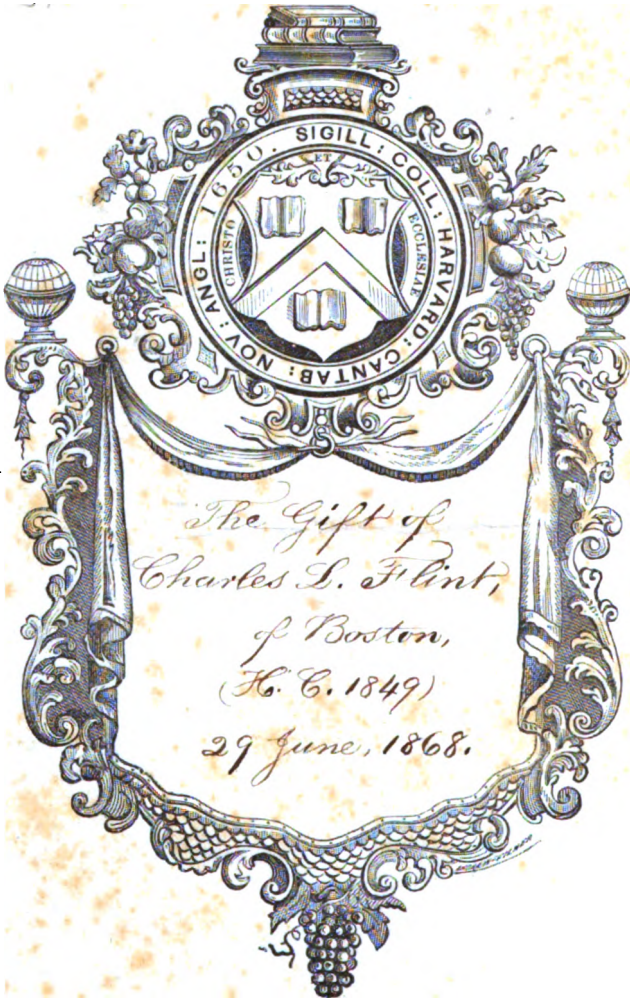 SIGILL: COLL: HARVARD: CANTAB: NOV: ANGL: 1650.
CHRISTO
ET
ECCLESIAE
The Gift of
Charles L. Flint,
of Boston,
(H. C. 1849)
29 June, 1868.